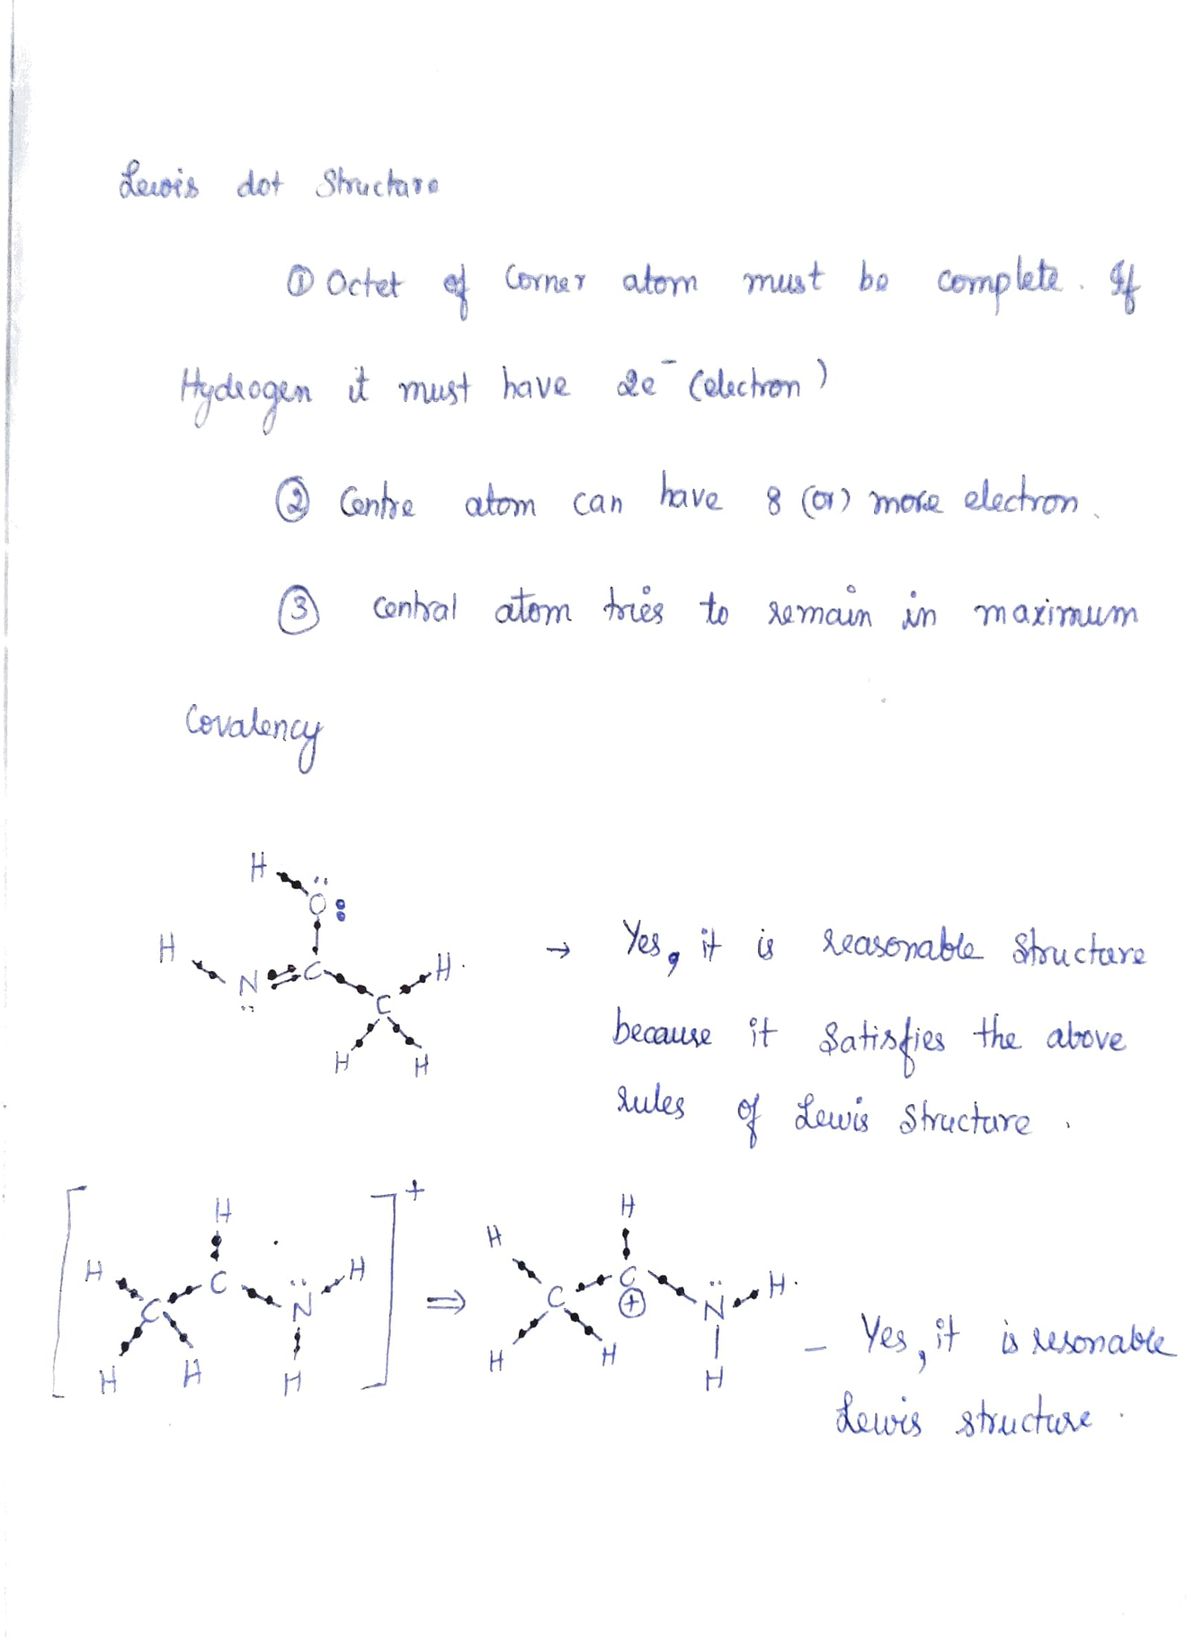 Lewis dot structure
① Octet of Corner atom must be complete. If
Hydrogen it must have 2e⁻ (electron)
② Centre atom can have 8 (or) more electron.
③ Central atom tries to remain in maximum
Covalency
H
O
H
N
C
H
C
H
H
→ Yes, it is reasonable structure
because it satisfies the above
rules of Lewis structure.
[ ]⁺
H
H
C
C
H
H
N
H
H
⇒
H
H
C
C
⊕
H
H
N
H
H
– Yes, it is resonable
Lewis structure.